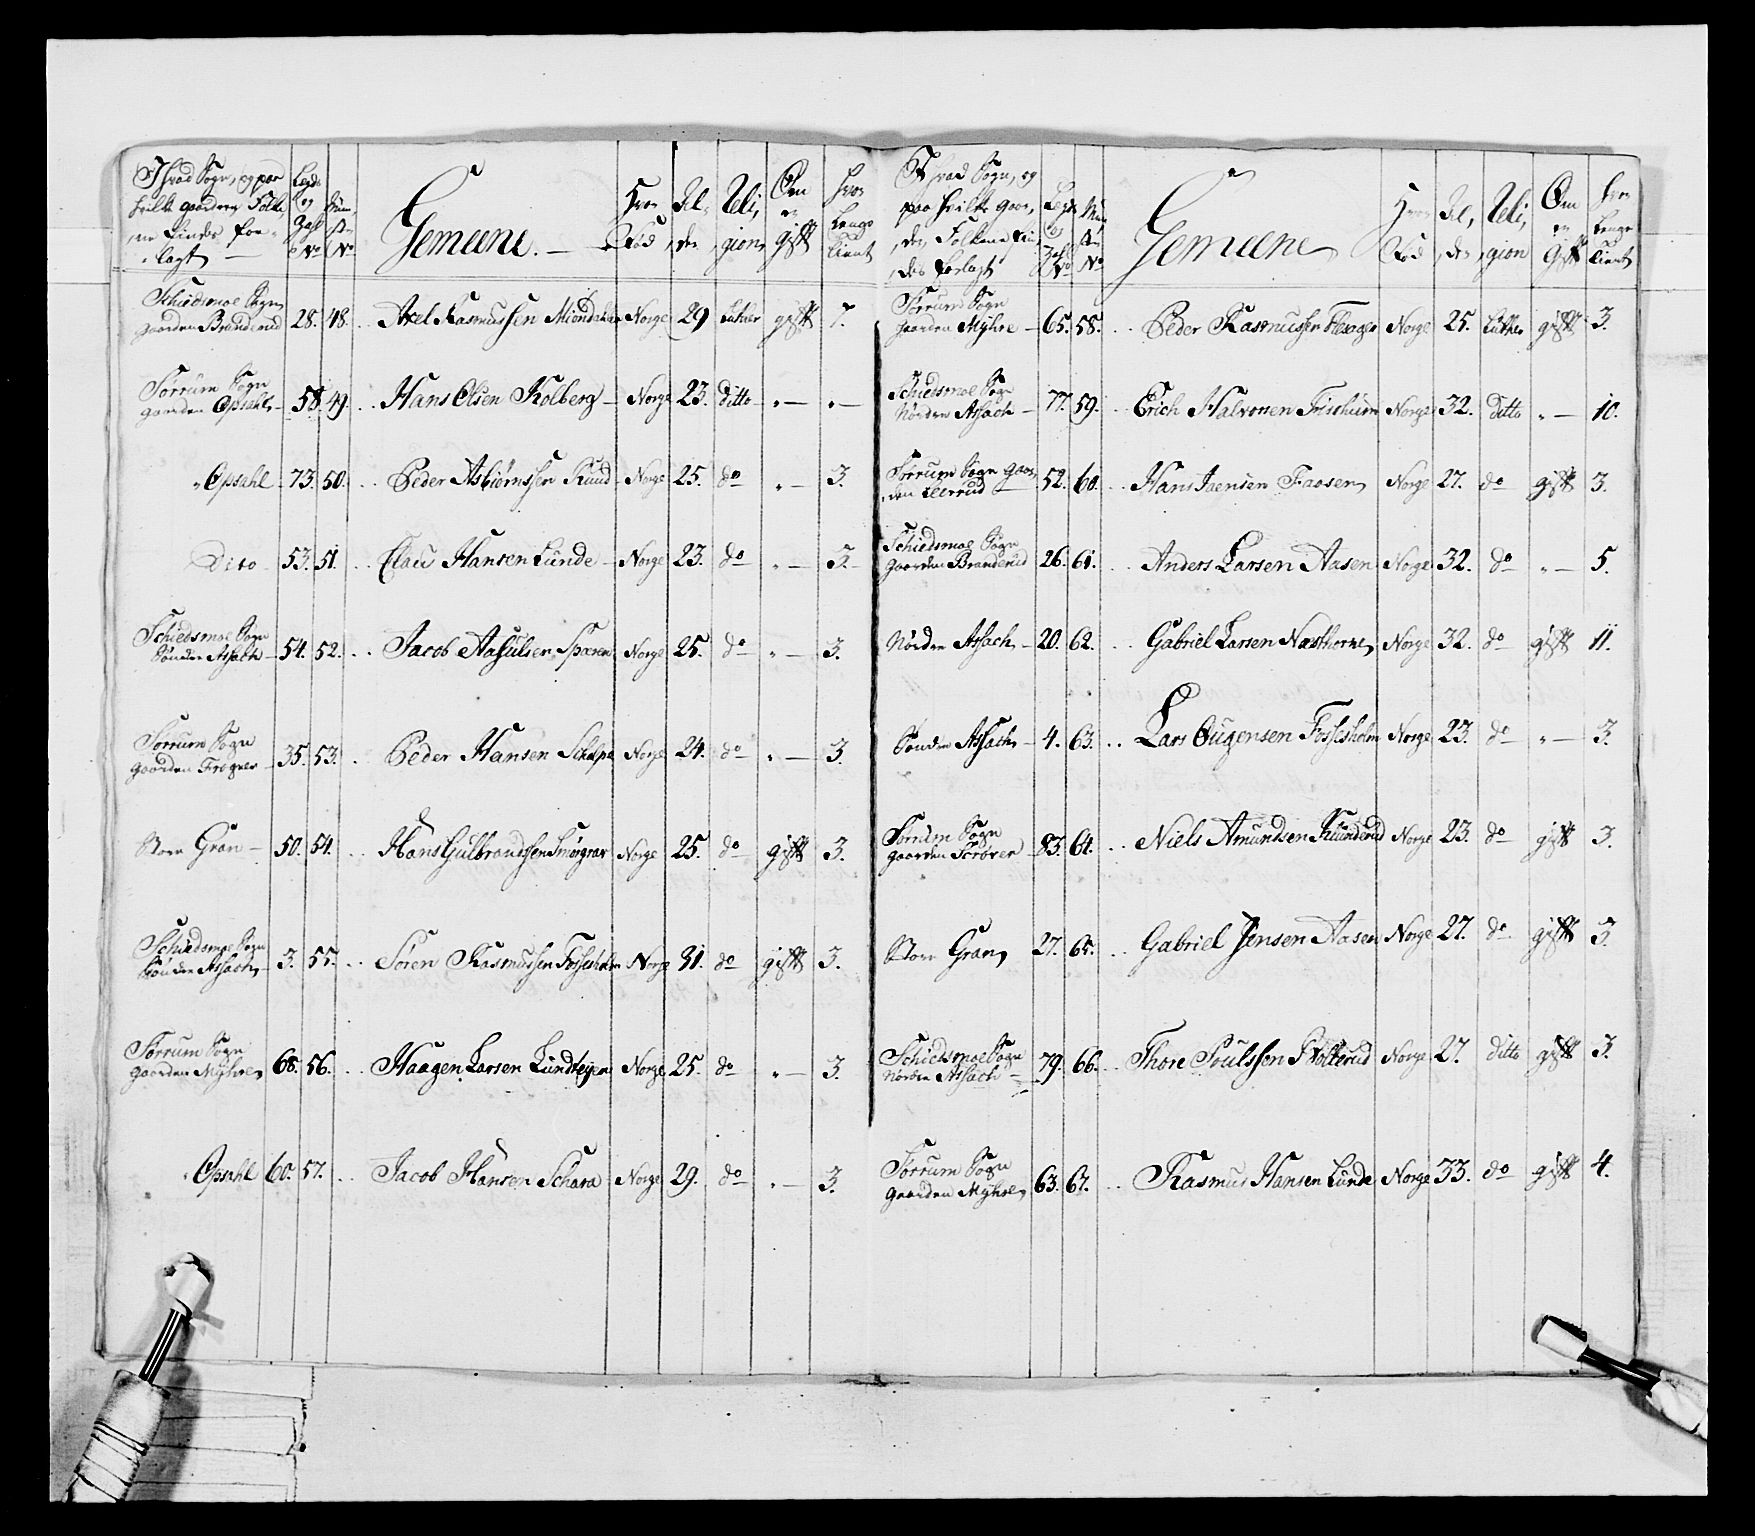 I hvad Sogn, og paa
hvilke gaarder Folke
ne findes for
lagt
Legds og Zahl No
Num̄er No
Gemeene
Hvor Fød
Al,der
Reli,gion
Om er gift
Hvor Længe tient
Schiedsmoe Sogn
gaarden Branderud 28. 48. Axel Rasmussen Miøndahlen Norge 29 Luther gift 7.
Sørrum Sogn
gaarden Opsahl 58. 49. Hans Olsen Kolberg Norge 23. ditto " — " —
Opsahl 73. 50. Peder Asbiørnssen Ruud Norge 25. do " — 3.
Dito 53. 51. Claus Hansen Lunde Norge 23. do " — 3.
Schiedsmoe Sogn
Sønder Assach 54. 52. Jacob Aasulsen Sparen Norge 25. do " — 3.
Sørrum Sogn
gaarden Frogner 35. 53. Peder Hansen Schalpe Norge 24. do " — 3.
Store Gran 50. 54. Hans Gulbrandssen Smørgrav Norge 25. do gift 3.
Schiedsmoe Sogn
Sønder Assach 3. 55. Søren Rasmussen Fossesholm Norge 31. do gift 3.
Sørrum Sogn
gaarden Myhre 68. 56. Haagen Larsen Lundteigen Norge 25. do " — 3.
Opsahl 60. 57. Jacob Hansen Schara Norge 29. do " — 3.
I hvad Sogn, og
paa hvilke gaar,
der Folkene fin,
des forlagt
Legds og Zahl No
Num̄er No
Gemeene
Hvor Fød
Al,der
Reli,gion
Om er Gift
Hvor Længe tient
Sørrum Sogn
gaarden Myhre 65. 58. Peder Rasmussen Norge 25. Luther gift 3.
Schiedsmoe Sogn
Nordre Assach 77. 59. Erich Halvorsen Norge 32. ditto " — 10.
Sørrum Sogn gaar,
den Leerrud 52. 60. Hans Jensen Faosen Norge 27. do gift 3.
Schiedsmoe Sogn
gaarden Branderud 26. 61. Anders Larsen Aasen Norge 32. do " — 5.
Nordre Assach 20. 62. Gabriel Larsen Næsthorne Norge 32. do gift 11.
Sønder Assach 4. 63. Lars Ougensen Fossesholm Norge 23. do " — 3.
Sørrum Sogn
gaarden Sørøver 83. 64. Niels Amundsen Norge 23. do gift 3.
Store Gran 27. 65. Gabriel Jensen Aasen Norge 27. do gift 3.
Schiedsmoe Sogn
Nordre Assach 79. 66. Thore Poulssen Norge 27. ditto gift 3.
Sørrum Sogn
gaarden Myhre 63. 67. Rasmus Hansen Lunde Norge 33. do gift 4.